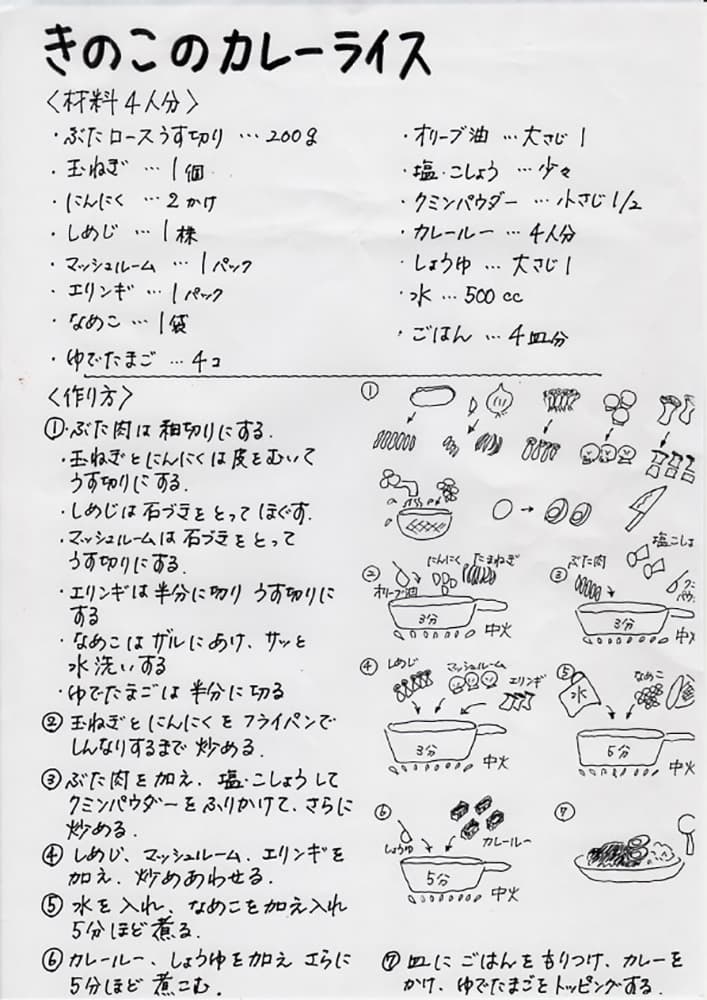 きのこのカレーライス
〈材料4人分〉
・ぶたロースうす切り …200g
・玉ねぎ …1個
・にんにく …2かけ
・しめじ …1株
・マッシュルーム …1パック
・エリンギ …1パック
・なめこ …1袋
・ゆでたまご …4コ
・オリーブ油 …大さじ1
・塩・こしょう …少々
・クミンパウダー …小さじ1/2
・カレールー …4人分
・しょうゆ …大さじ1
・水 …500cc
・ごはん …4皿分
〈作り方〉
①・ぶた肉は細切りにする.
・玉ねぎとにんにくは皮をむいて
うす切りにする.
・しめじは石づきをとってほぐす.
・マッシュルームは石づきをとって
うす切りにする.
・エリンギは半分に切りうす切りに
する
・なめこはザルにあけ、サッと
水洗いする
・ゆでたまごは半分に切る
②玉ねぎとにんにくをフライパンで
しんなりするまで炒める.
③ぶた肉を加え、塩・こしょうして
クミンパウダーをふりかけて、さらに
炒める.
④しめじ、マッシュルーム、エリンギを
加え、炒めあわせる.
⑤水を入れ、なめこを加え入れ
5分ほど煮る.
⑥カレールー、しょうゆを加えさらに
5分ほど煮こむ.
⑦皿にごはんをもりつけ、カレーを
かけ、ゆでたまごをトッピングする.
①
②
にんにく
たまねぎ
オリーブ油
3分
中火
③
ぶた肉
塩こしょ
3分
中
④
しめじ
マッシュルーム
エリンギ
3分
中火
⑤
水
なめこ
5分
中火
⑥
しょうゆ
カレールー
5分
中火
⑦